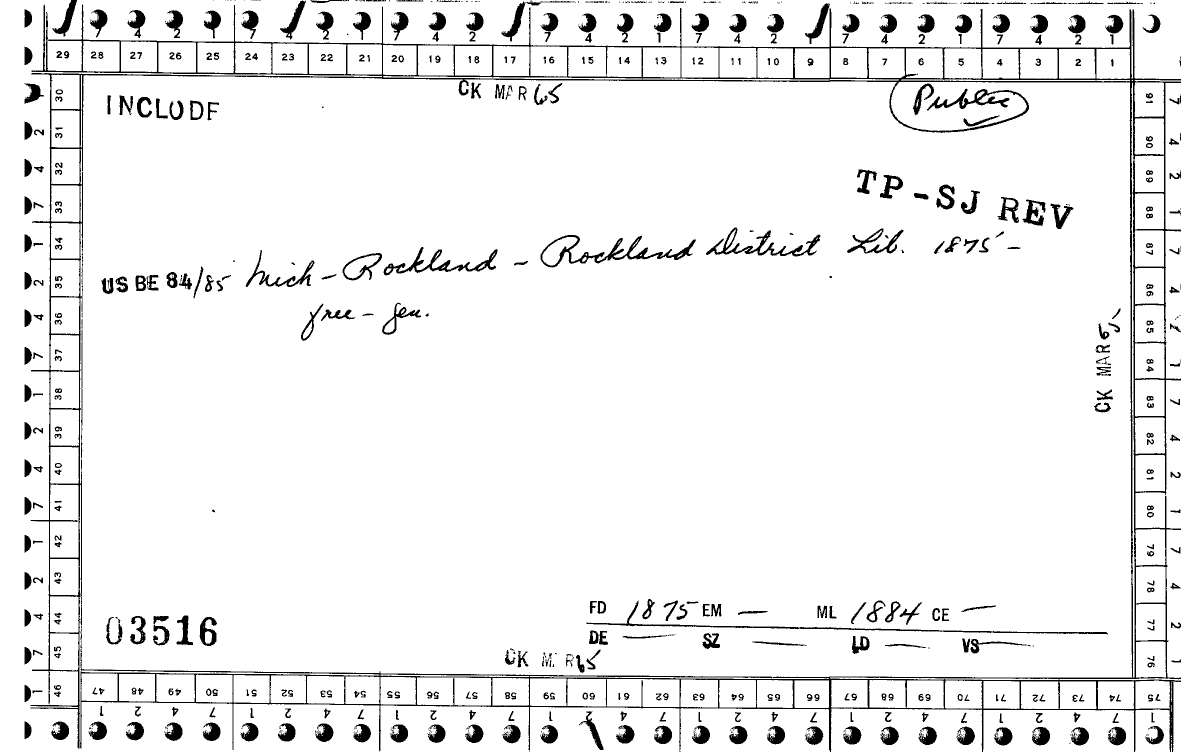 7 4 2 1 7 4 2 1 7 4 2 1 7 4 2 1 7 4 2 1 7 4 2 1 7 4 2 1
29 28 27 26 25 24 23 22 21 20 19 18 17 16 15 14 13 12 11 10 9 8 7 6 5 4 3 2 1
CK MAR 65
INCLUDE
Public
TP-SJ REV
US BE 84/85 Mich - Rockland - Rockland District Lib. 1875 -
free - gen.
CK MAR 65
FD 1875 EM — ML 1884 CE —
03516
DE — SZ — LD — VS —
CK MAR 65
30 31 32 33 34 35 36 37 38 39 40 41 42 43 44 45 46
2 4 7 1 2 4 7 1 2 4 7 1 2 4 7 1
91 90 89 88 87 86 85 84 83 82 81 80 79 78 77 76
7 4 2 1 7 4 2 1 7 4 2 1 7 4 2 1
47 48 49 50 51 52 53 54 55 56 57 58 59 60 61 62 63 64 65 66 67 68 69 70 71 72 73 74 75
1 2 4 7 1 2 4 7 1 2 4 7 1 2 4 7 1 2 4 7 1 2 4 7 1 2 4 7 1